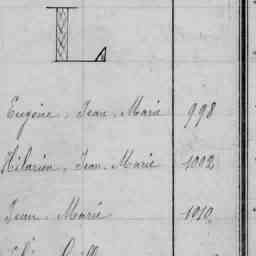 L
Eugène, Jean Marie 998
Hilarion, Jean Marie 1002
Jean Marie 1010